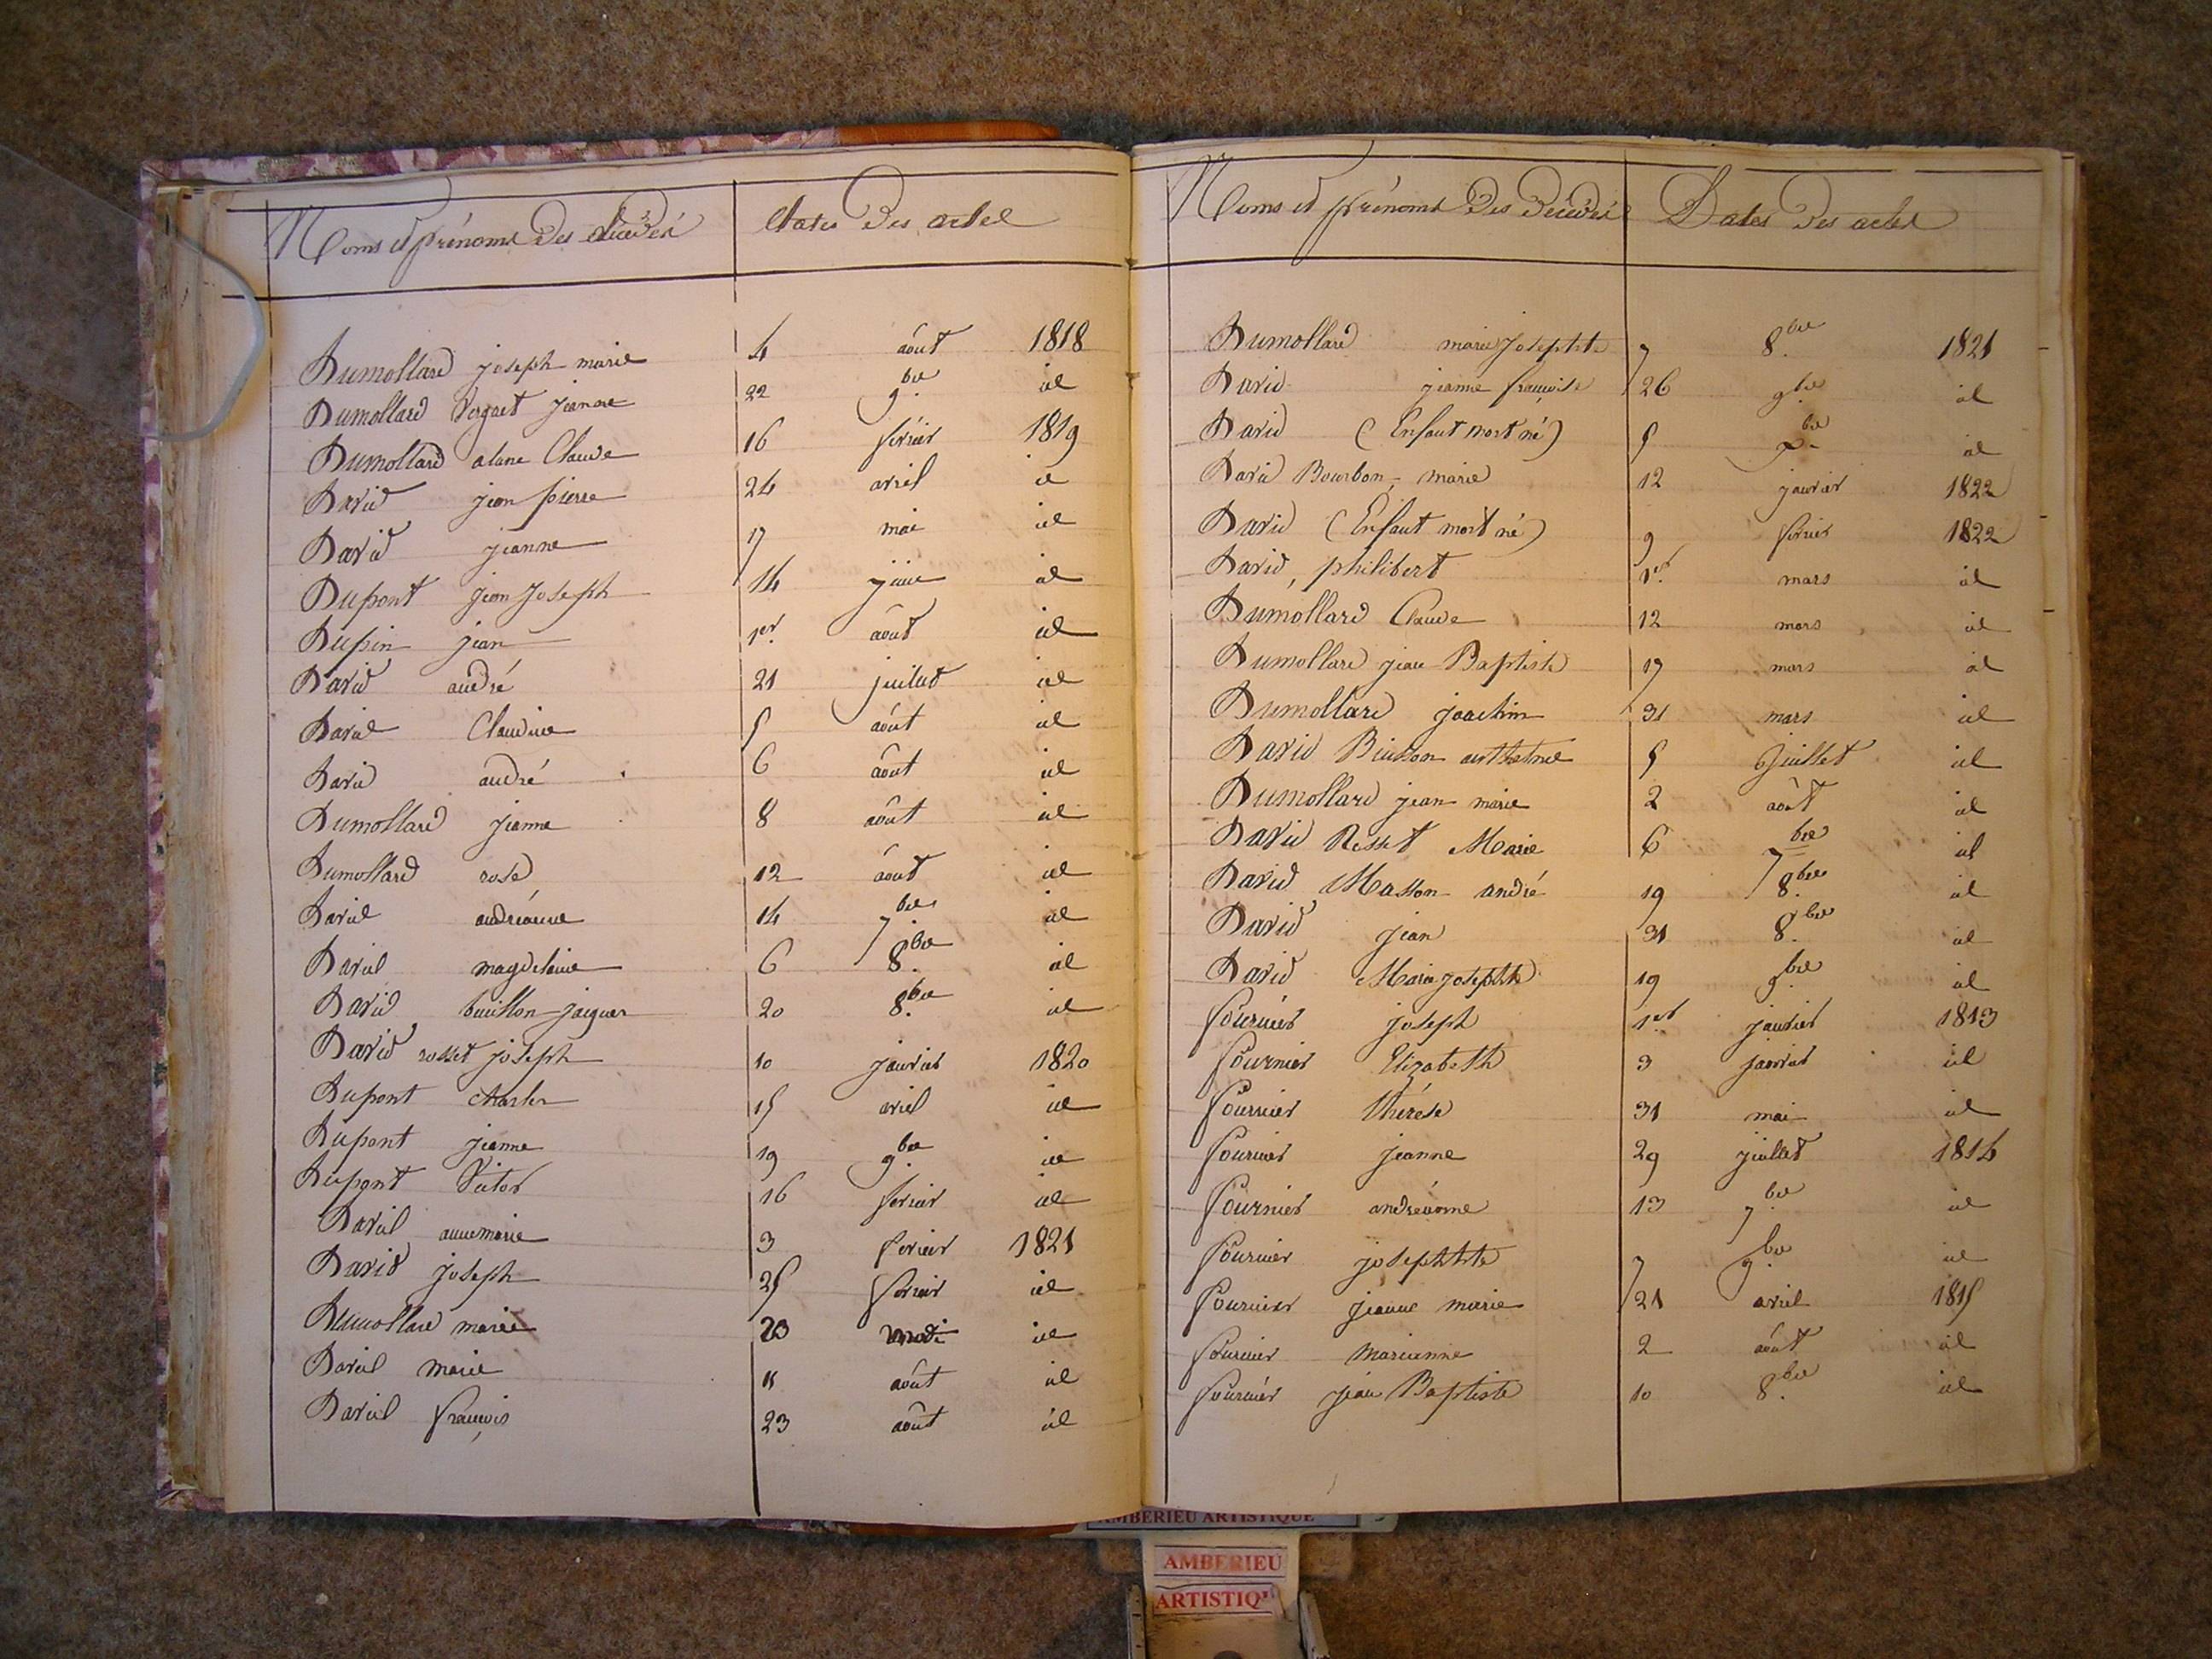 Noms et prénoms des décédés Dates des actes
Dumollard joseph marie 4 août 1818
Dumollard Vergnet jeanne 22 9.bre id
Dumollard Claude 16 février 1819
David jean pierre 24 avril id
David jeanne 17 mai id
Dupont jean joseph 14 juin id
Dupin jean 1er août id
David andré 21 juillet id
David Claudine 5 août id
David andré 6 août id
Dumollard jeanne 8 août id
Dumollard rose 12 août id
David andréanne 14 7bre id
David magdelaine 6 8.bre id
David buisson jacques 20 8.bre id
David rosset joseph 10 janvier 1820
Dupont charles 15 avril id
Dupont jeanne 19 9.bre id
Dupont Victor 16 février id
David anne marie 3 février 1821
David joseph 25 février id
Dumollard marie 23 id
David marie 11 août id
David françois 23 août id
Noms et prénoms des décédés Dates des actes
Dumollard marie josephte 7 8.bre 1821
David jeanne françoise 26 9.bre id
David (Enfant mort né) 5 id
David Bourbon, marie 12 janvier 1822
David (Enfant mort né) 9 février 1822
David, philibert 1er mars id
Dumollard Claude 12 mars id
Dumollard jean Baptiste 17 mars id
Dumollard joachim 31 mars id
David Buisson anthelme 5 juillet id
Dumollard jean marie 2 août id
David Rosset Marie 6 7bre id
David Masson andré 19 8.bre id
David jean 31 8.bre id
David Marie josephte 19 9.bre id
fournier joseph 1er janvier 1813
fournier Elizabeth 3 janvier id
fournier thérèse 31 mai id
fournier jeanne 29 juillet 1814
fournier andréanne 13 7bre id
fournier josephte 7 9.bre id
fournier jeanne marie 21 avril 1815
fournier marianne 2 août id
fournier jean Baptiste 10 8.bre id
AMBERIEU ARTISTIQUE
AMBERIEU
ARTISTIQ